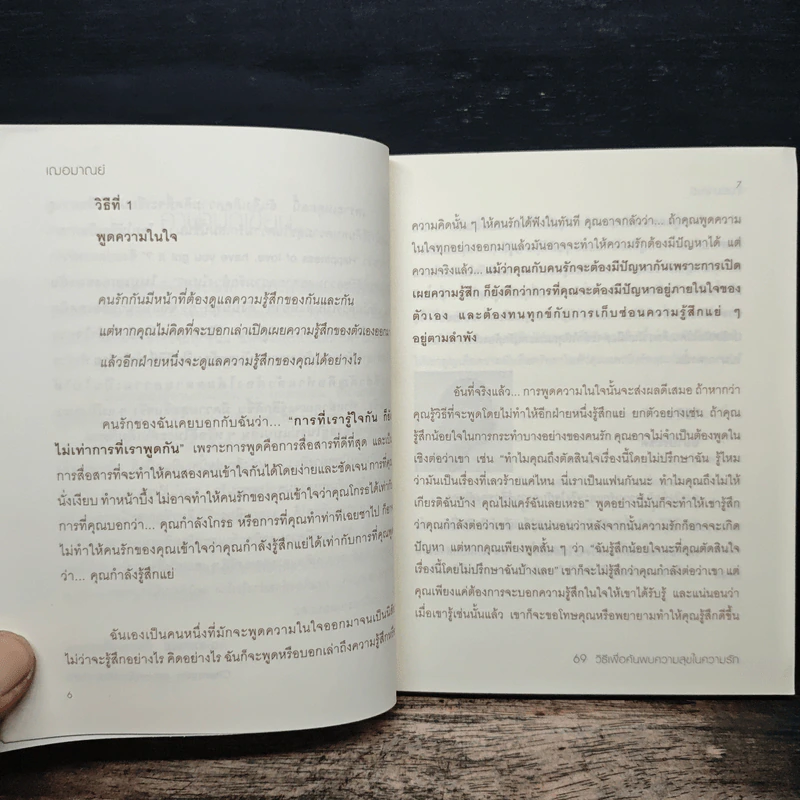 เฌอมาณย์
วิธีที่ 1
พูดความในใจ
คนรักกันมีหน้าที่ต้องดูแลความรู้สึกของกันและกัน
แต่หากคุณไม่คิดที่จะบอกเล่าเปิดเผยความรู้สึกของตัวเองออกมา
แล้วอีกฝ่ายหนึ่งจะดูแลความรู้สึกของคุณได้อย่างไร
คนรักของฉันเคยบอกกับฉันว่า... “การที่เรารู้ใจกัน ก็ยัง
ไม่เท่าการที่เราพูดกัน” เพราะการพูดคือการสื่อสารที่ดีที่สุด และเป็น
การสื่อสารที่จะทำให้คนสองคนเข้าใจกันได้โดยง่ายและชัดเจน การที่คุณ
นั่งเงียบ ทำหน้าบึ้ง ไม่อาจทำให้คนรักของคุณเข้าใจว่าคุณโกรธได้เท่ากับ
การที่คุณบอกว่า... คุณกำลังโกรธ หรือการที่คุณทำท่าทีเฉยชาไป ก็อาจ
ไม่ทำให้คนรักของคุณเข้าใจว่าคุณกำลังรู้สึกแย่ได้เท่ากับการที่คุณพูด
ว่า... คุณกำลังรู้สึกแย่
ฉันเองเป็นคนหนึ่งที่มักจะพูดความในใจออกมาจนเป็นนิสัย
ไม่ว่าจะรู้สึกอย่างไร คิดอย่างไร ฉันก็จะพูดหรือบอกเล่าถึงความรู้สึกหรือ
6
7
ความคิดนั้น ๆ ให้คนรักได้ฟังในทันที คุณอาจกลัวว่า... ถ้าคุณพูดความ
ในใจทุกอย่างออกมาแล้วมันอาจจะทำให้ความรักต้องมีปัญหาได้ แต่
ความจริงแล้ว... แม้ว่าคุณกับคนรักจะต้องมีปัญหากันเพราะการเปิด
เผยความรู้สึก ก็ยังดีกว่าการที่คุณจะต้องมีปัญหาอยู่ภายในใจของ
ตัวเอง และต้องทนทุกข์กับการเก็บซ่อนความรู้สึกแย่ ๆ
อยู่ตามลำพัง
อันที่จริงแล้ว... การพูดความในใจนั้นจะส่งผลดีเสมอ ถ้าหากว่า
คุณรู้วิธีที่จะพูดโดยไม่ทำให้อีกฝ่ายหนึ่งรู้สึกแย่ ยกตัวอย่างเช่น ถ้าคุณ
รู้สึกน้อยใจในการกระทำบางอย่างของคนรัก คุณอาจไม่จำเป็นต้องพูดใน
เชิงต่อว่าเขา เช่น “ทำไมคุณถึงตัดสินใจเรื่องนี้โดยไม่ปรึกษาฉัน รู้ไหม
ว่ามันเป็นเรื่องที่เลวร้ายแค่ไหน นี่เราเป็นแฟนกันนะ ทำไมคุณถึงไม่ให้
เกียรติฉันบ้าง คุณไม่แคร์ฉันเลยเหรอ” พูดอย่างนี้มันก็จะทำให้เขารู้สึก
ว่าคุณกำลังต่อว่าเขา และแน่นอนว่าหลังจากนั้นความรักก็อาจจะเกิด
ปัญหา แต่หากคุณเพียงพูดสั้น ๆ ว่า “ฉันรู้สึกน้อยใจนะที่คุณตัดสินใจ
เรื่องนี้โดยไม่ปรึกษาฉันบ้างเลย” เขาก็จะไม่รู้สึกว่าคุณกำลังต่อว่าเขา แต่
คุณเพียงแค่ต้องการจะบอกความรู้สึกในใจให้เขาได้รับรู้ และแน่นอนว่า
เมื่อเขารู้เช่นนั้นแล้ว เขาก็จะขอโทษคุณหรือพยายามทำให้คุณรู้สึกดีขึ้น
69 วิธีเพื่อค้นพบความสุขในความรัก